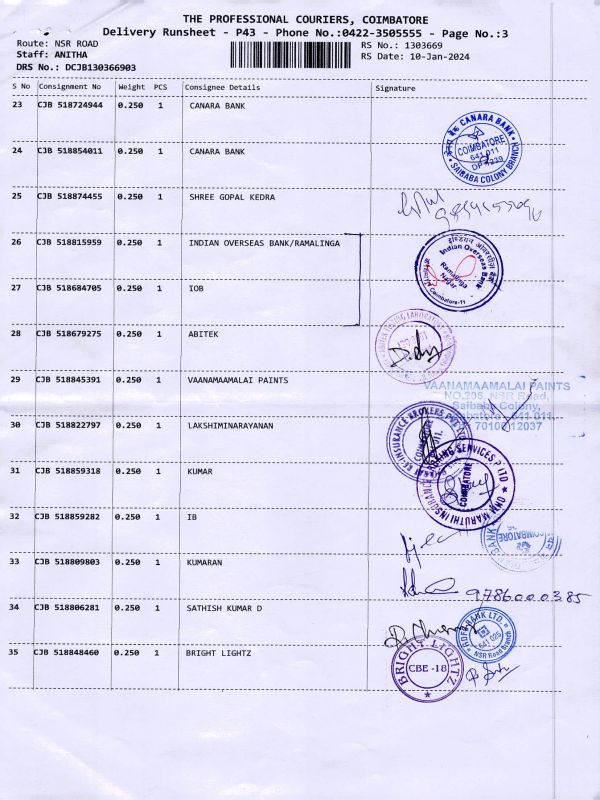 THE PROFESSIONAL COURIERS, COIMBATORE
Delivery Runsheet - P43 - Phone No.:0422-3505555 - Page No.:3
Route: NSR ROAD
RS No.: 1303669
Staff: ANITHA
RS Date: 10-Jan-2024
DRS No.: DCJB130366903
S No Consignment No Weight PCS Consignee Details Signature
23 CJB 518724944 0.250 1 CANARA BANK
CANARA BANK
COIMBATORE
641 011
SAIBABA COLONY BRANCH
24 CJB 518854011 0.250 1 CANARA BANK
25 CJB 518874455 0.250 1 SHREE GOPAL KEDRA
26 CJB 518815959 0.250 1 INDIAN OVERSEAS BANK/RAMALINGA
Indian Overseas Bank
Ramalinga
Nagar
Coimbatore-11
27 CJB 518684705 0.250 1 IOB
28 CJB 518679275 0.250 1 ABITEK
29 CJB 518845391 0.250 1 VAANAMAAMALAI PAINTS
VAANAMAAMALAI PAINTS
NO.205, NSR Road,
Saibaba Colony,
30 CJB 518822797 0.250 1 LAKSHIMINARAYANAN
31 CJB 518859318 0.250 1 KUMAR
COIMBATORE
OM MARUTHI INSURANCE
32 CJB 518859282 0.250 1 IB
33 CJB 518809803 0.250 1 KUMARAN
9786000385
34 CJB 518806281 0.250 1 SATHISH KUMAR D
BANK LTD.
641 025
NSR Road Branch
35 CJB 518848460 0.250 1 BRIGHT LIGHTZ
BRIGHT LIGHTZ
CBE -18